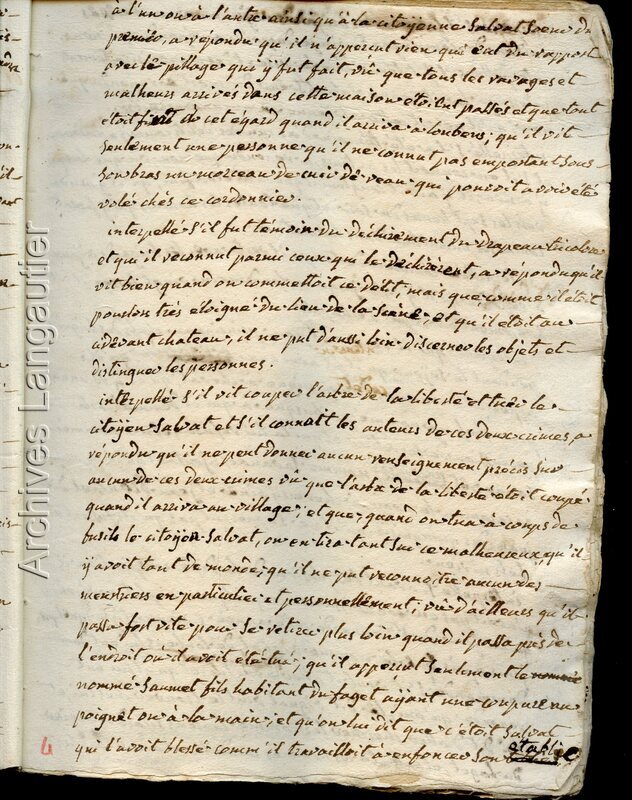 à l'un ou à l'autre ainsi qu'à la citoyenne Salvat Soeur du
premier, a répondu qu'il n'apperçut rien qui eut du rapport
avec le pillage qui y fut fait, vû que tous les ravages et
malheurs arrivés dans cette maison étoient passés et que tout
étoit fait à cet egard quand il arriva à Loubens; qu'il vit
Seulement une personne qu'il ne connut pas emportant Sous
Son bras un morceau de cuir de veau qui pouvoit avoir été
volé chés ce cordonnier.
interpellé S'il fut témoin du déchirement du Drapeau tricolore
et qui il reconnut parmi ceux qui le déchirèrent, a répondu qu'il
vit bien quand on commettoit ce délit, mais que comme il étoit
pour lors très eloigné du lieu de la Scène, et qu'il étoit au
cidevant chateau, il ne put d'aussi loin discerner les objets et
distinguer les personnes.
interpellé S'il vit couper l'arbre de la liberté et tuer le
citoyen Salvat et S'il connaît les auteurs de ces deux crimes, a
répondu qu'il ne peut donner aucun renseignement précis Sur
aucun de ces deux crimes vû que l'arbre de la liberté étoit coupé
quand il arriva au village; et que, quand on tua à coups de
fusils le citoyen Salvat, on en tira tant Sur ce malheureux, qu'il
y avoit tant de monde, qu'il ne put reconnoitre aucun des
meurtriers en particulier et personnellement; vû d'ailleurs qu'il
passa fort vite pour Se retirer plus loin quand il passa près de
l'endroit où il avoit été tué; qu'il apperçut Seulement le nommé
nommé Saumet fils habitant du faget ayant une coupure au
poignet ou à la main; et qu'on lui dit que c'étoit Salvat
qui l'avoit blessé comm'il travailloit à enfoncer Son etablie
4
Archives Langautier